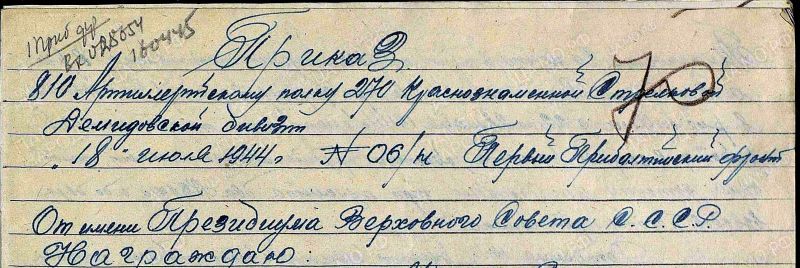 1 Приб фр
вх 028654
160445
Приказ
810 Артиллерийскому полку 270 Краснознаменной Стрелковой
Демидовской дивизии
"18" июля 1944г. N 06/н Первый Прибалтийский фронт
От имени Президиума Верховного Совета С.С.С.Р.
Награждаю: